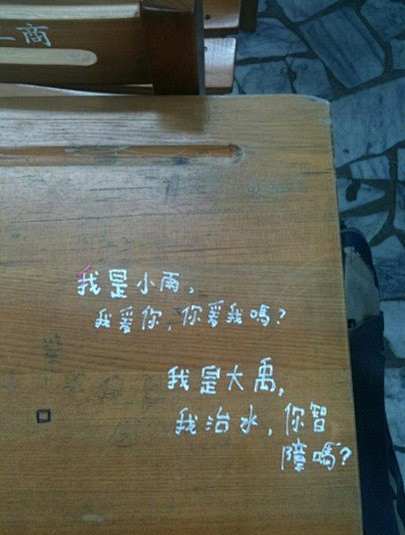 工商
我是小雨,
我爱你,你爱我嗎?
我是大禹,
我治水,你智
障嗎?